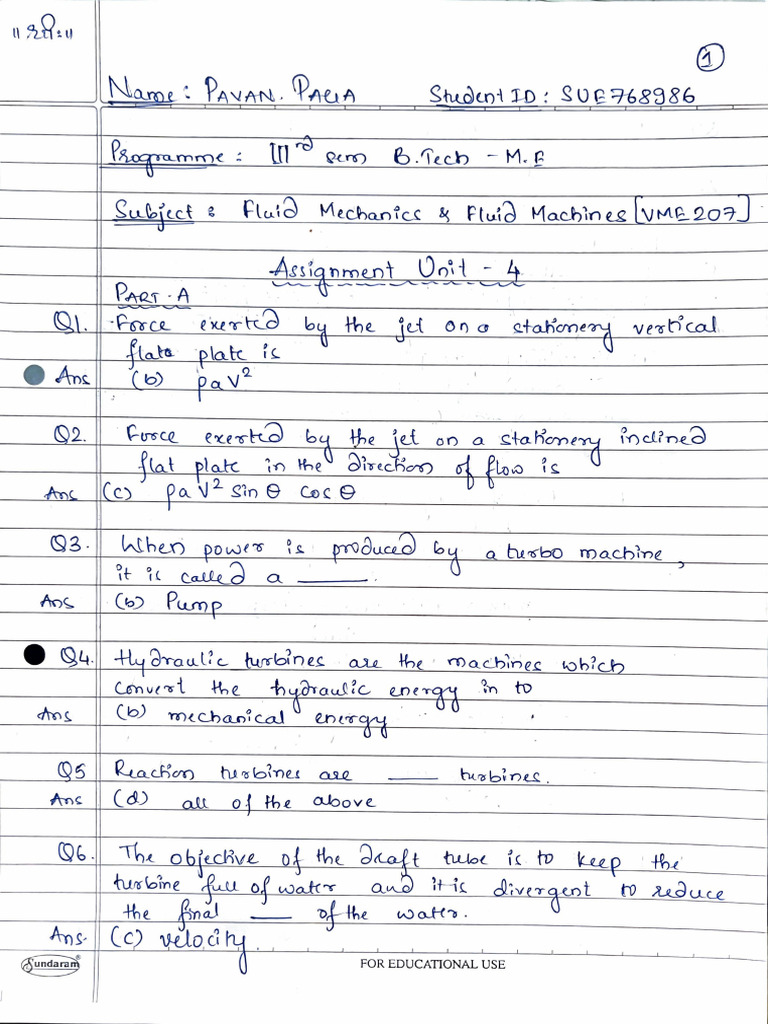 ॥ श्रीः॥
1
Name: PAVAN. PAGA Student ID: SUE768986
Programme: IIIrd sem B.Tech - M.E
Subject: Fluid Mechanics & Fluid Machines [VME207]
Assignment Unit - 4
PART-A
Q1. Force exerted by the jet on a stationery vertical
flate plate is
Ans (b) ρaV²
Q2. Force exerted by the jet on a stationery inclined
flat plate in the direction of flow is
Ans (c) ρaV² sinθ cosθ
Q3. When power is produced by a turbo machine,
it is called a ______.
Ans (b) Pump
Q4. Hydraulic turbines are the machines which
convert the hydraulic energy in to
Ans (b) mechanical energy
Q5 Reaction turbines are ____ turbines.
Ans (d) all of the above
Q6. The objective of the draft tube is to keep the
turbine full of water and it is divergent to reduce
the final ___ of the water.
Ans. (c) velocity.
Sundaram®
FOR EDUCATIONAL USE